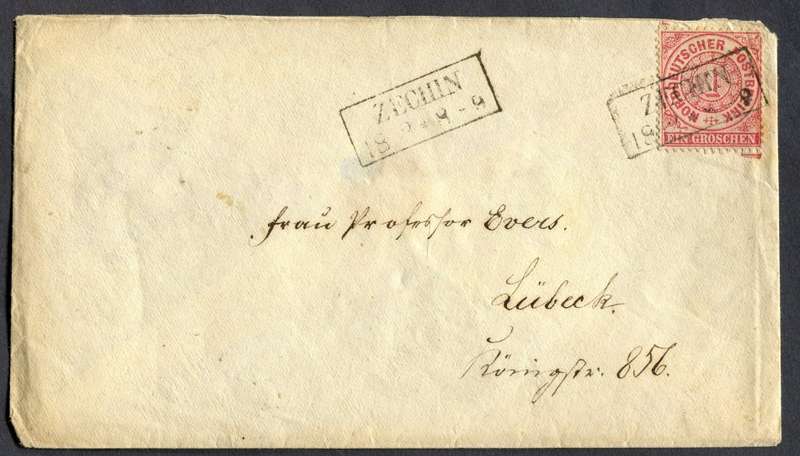 ZECHIN
18 5 8-9
NORDDEUTSCHER POSTBEZIRK
EIN GROSCHEN
ZECHIN
18 9
Frau Professor Evers.
Lübeck.
Königstr. 856.